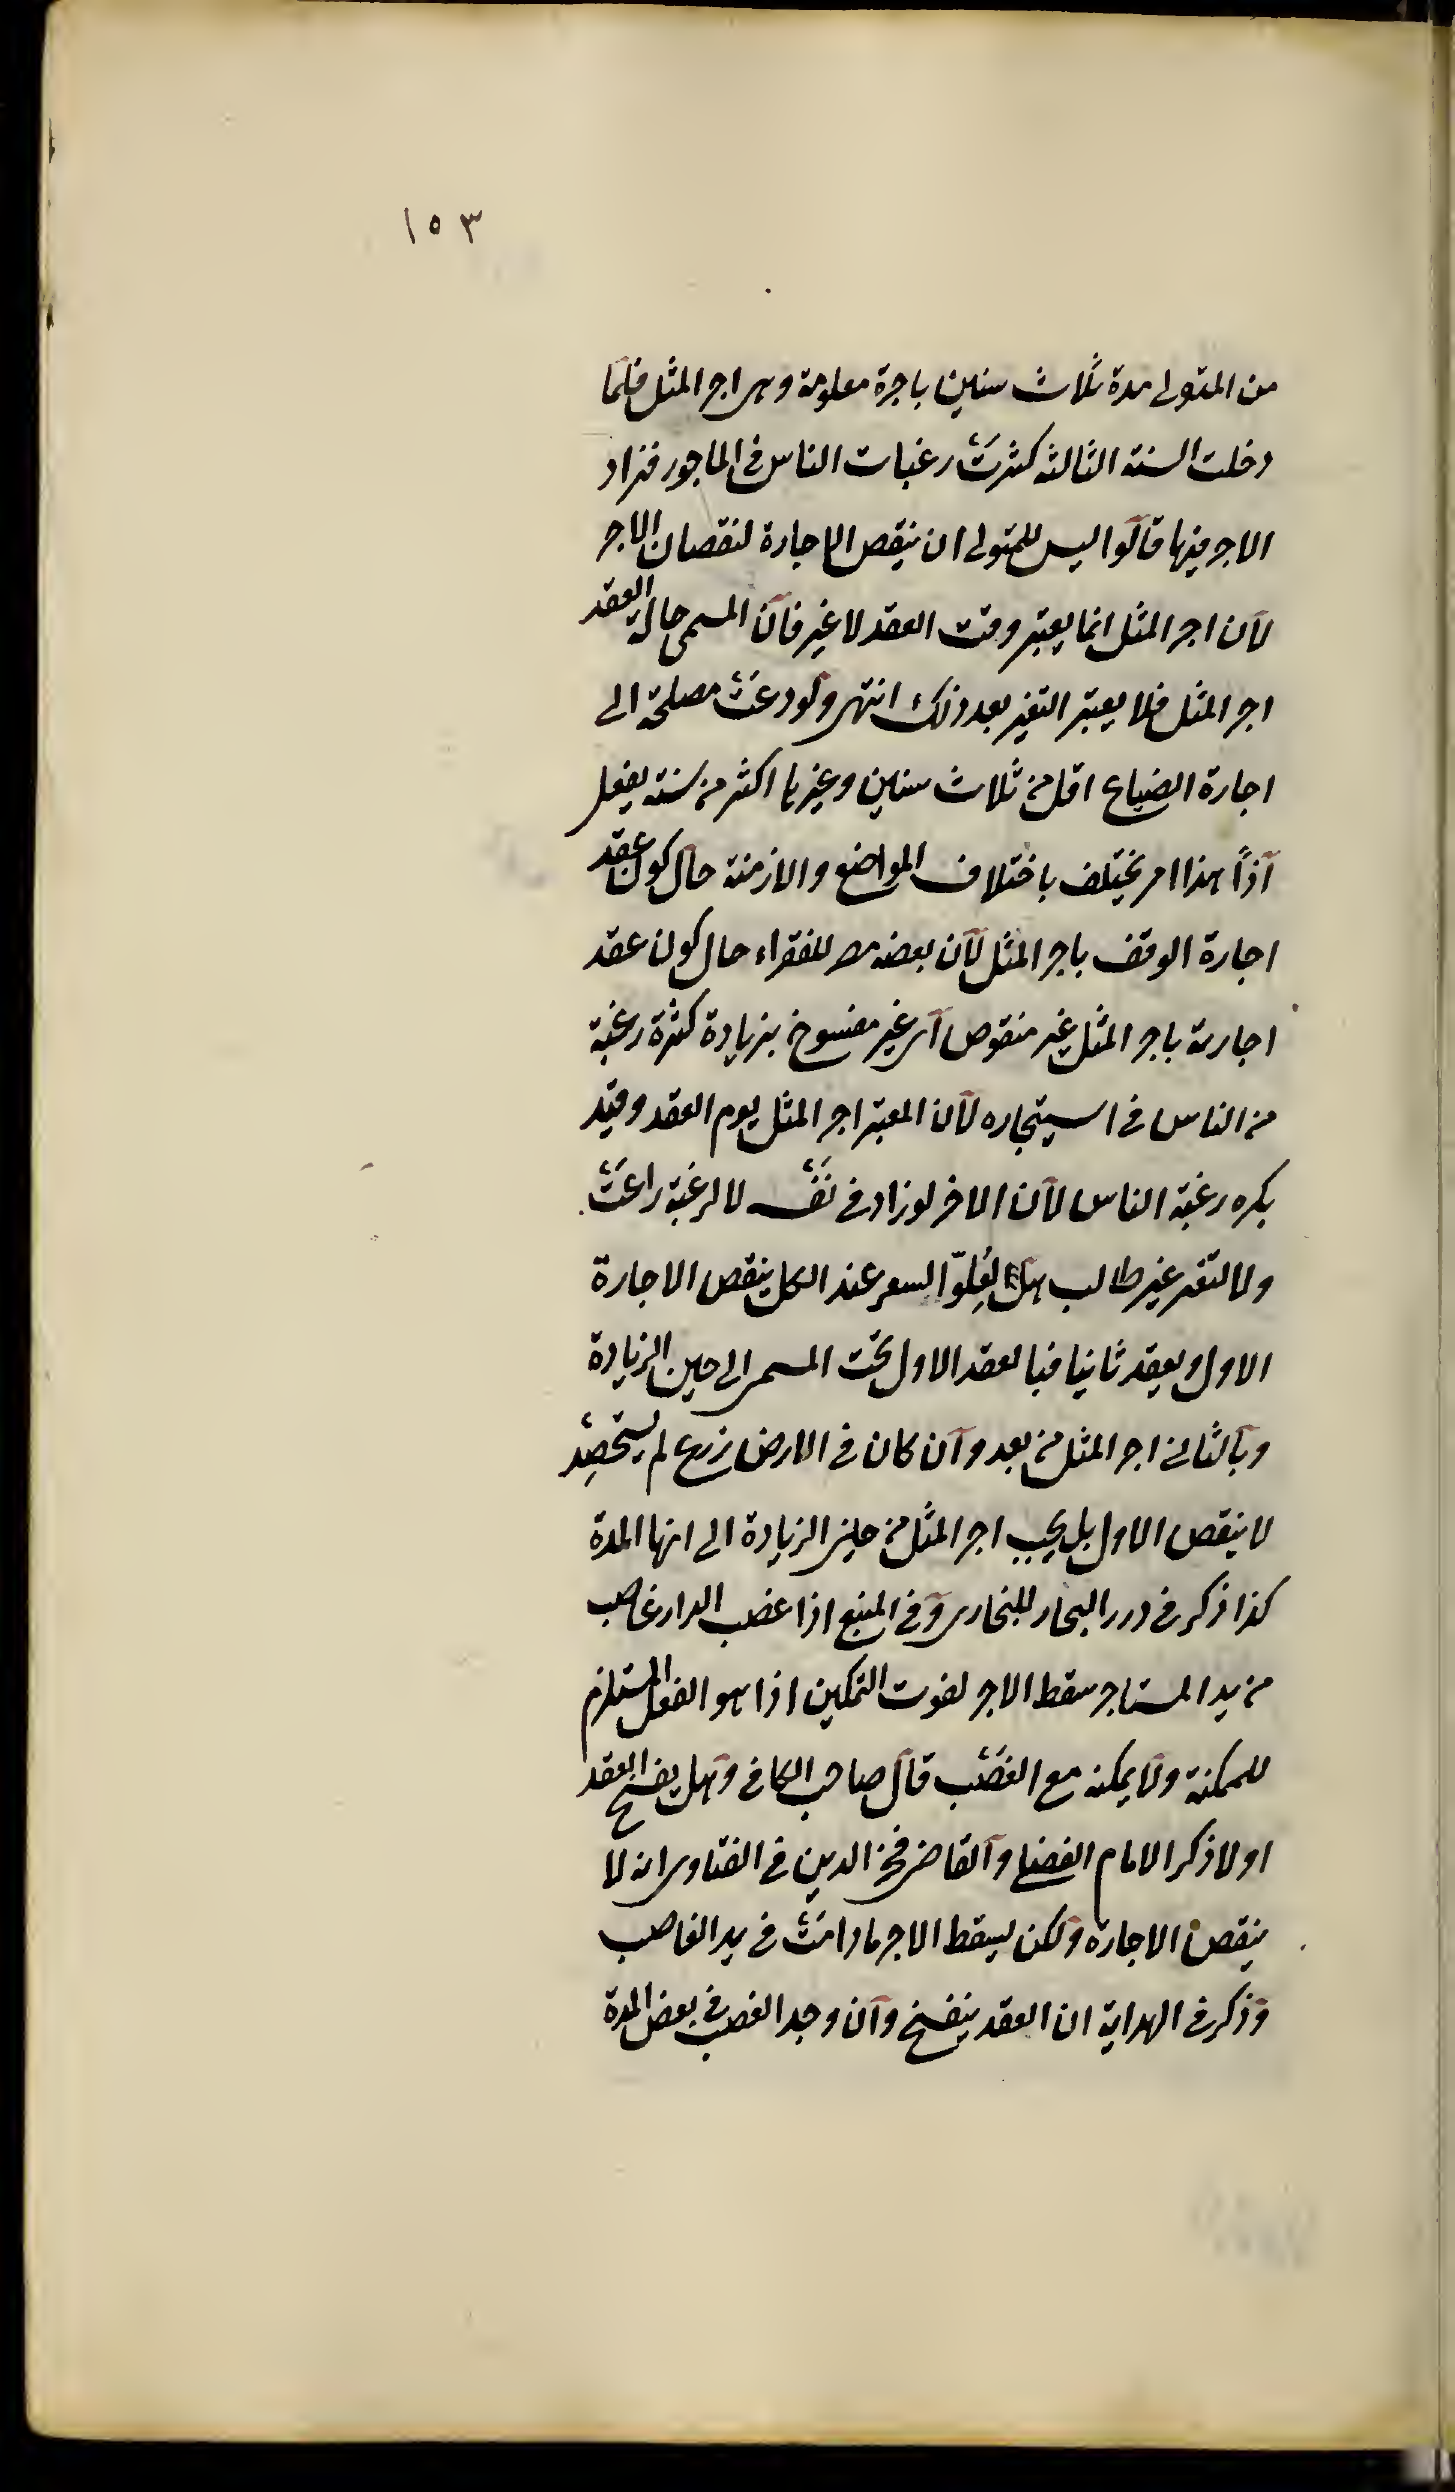 ١٥٣
من المتولى مدة ثلاث سنين باجرة معلومة وهى اجر المثل فلما
دخلت السنة الثالثة كثرت رغبات الناس فى الماجور فزاد
الاجر فيها قالوا ليس للمتولى ان ينقض الاجارة لنقصان الاجر
لان اجر المثل انما يعتبر وقت العقد لا غير فان المسمى حال العقد
اجر المثل فلا يعتبر التغير بعد ذلك انتهى ولو دعت مصلحة الى
اجارة الضياع اقل من ثلاث سنين وغيرها اكثر من سنة يفعل
اذا هذا امر يختلف باختلاف المواضع والازمنة حال كون عقد
اجارة الوقف باجر المثل لان بعضه للفقراء حال كون عقد
اجارته باجر المثل غير منقوص اى غير مفسوخ بزيادة كثرة رغبة
من الناس فى استيجاره لان المعتبر اجر المثل يوم العقد وقيد
بكره رغبة الناس لان الاخر لو زاد فى نفسه لا لرغبة راغب
ولا لتعنر غير طالب بل لغلو السعر عند الكل ينقض الاجارة
الاول ويعقد ثانيا فبالعقد الاول تحت المسمى الى حين الزيادة
وبالثانى اجر المثل من بعد وان كان فى الارض زرع لم يستحصد
لا ينقض الاول بل يجب اجر المثل من حين الزيادة الى انها المدة
كذا ذكر فى درر البحار للبخارى وفى المنبع اذا غصب الدار غاصب
من يد المستاجر سقط الاجر لفوت التمكين اذا هو الفعل المستلزم
للمكنة ولا يمكنه مع الغصب قال صاحب الكافى وهل يفسخ العقد
اولا ذكر الامام الفضلى والقاضى فخر الدين فى الفتاوى انه لا
ينقض الاجارة ولكن يسقط الاجر ما دامت فى يد الغاصب
وذكر فى الهداية ان العقد ينفسخ وان وجد الغصب فى بعض المدة